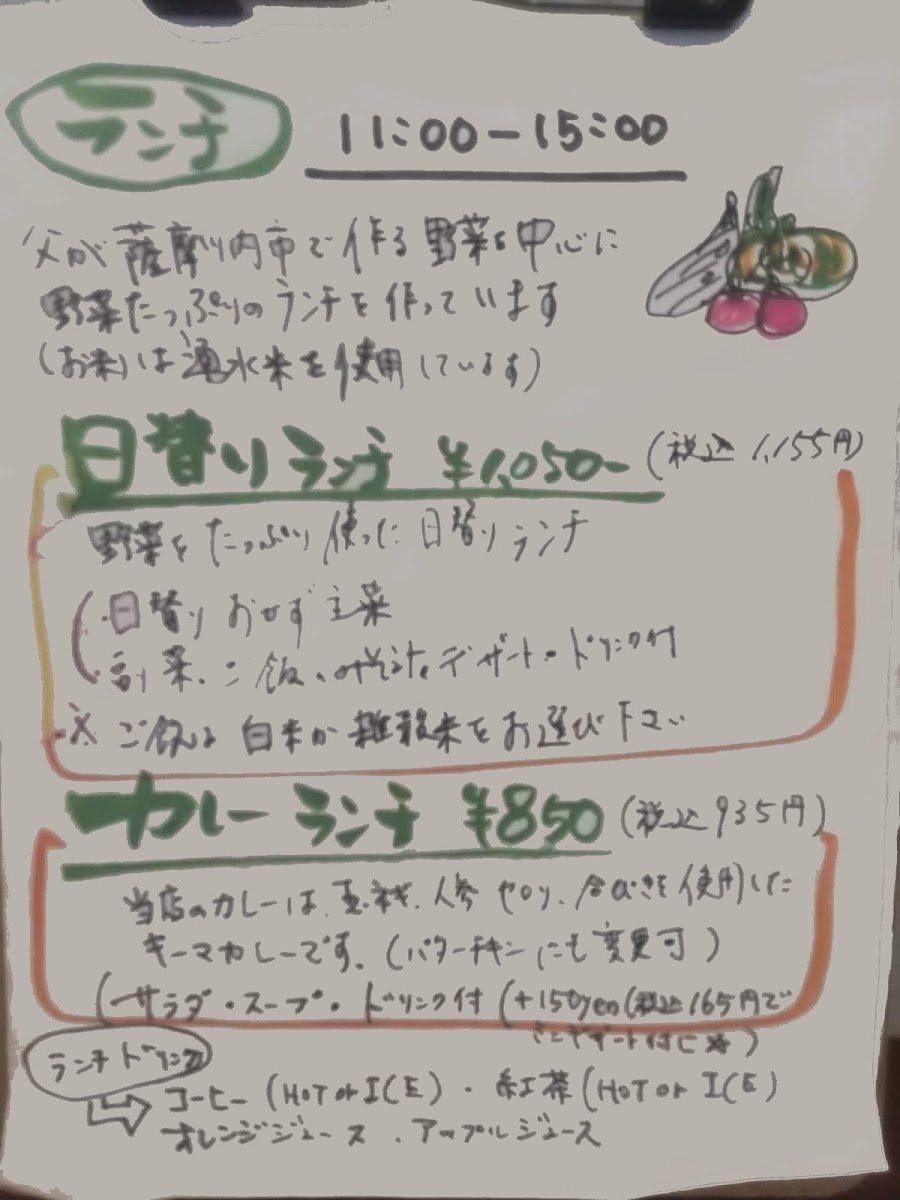 ランチ 11:00-15:00
父が薩摩川内市で作る野菜を中心に
野菜たっぷりのランチを作っています
(お米は湧水米を使用しています)
日替りランチ ¥1,050- (税込 1,155円)
野菜をたっぷり使った日替りランチ
(・日替りおかず主菜
・副菜、ご飯、みそ汁、デザート・ドリンク付
※ご飯は白米か雑穀米をお選び下さい
カレーランチ ¥850 (税込 935円)
当店のカレーは、玉ネギ、人参、セロリ、合びきを使用した
キーマカレーです。(バターチキンにも変更可)
(サラダ・スープ・ドリンク付 (+150yen(税込165円で
ミニデザート付に)
ランチドリンク
コーヒー (HOT or ICE)・紅茶 (HOT or ICE)
オレンジジュース、アップルジュース